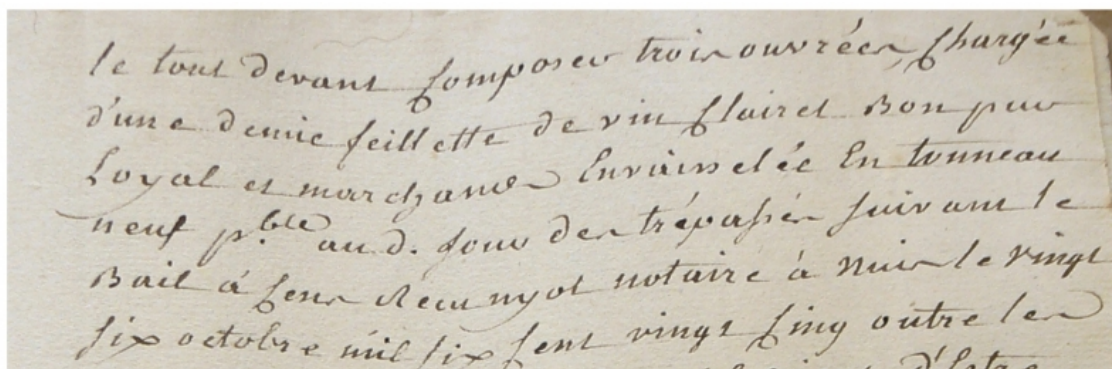 le tout devant Composer trois ouvrées, Chargée
d'une demie feillette de vin Clairet Bon pur
Loyal et marchand Envaisselée En tonneau
neuf p.ble aud. Jour des trépassés suivant le
Bail à Cens Reçu nyot notaire à nuis le vingt
six octobre mil six Cent vingt Cinq outre les
d'Estre